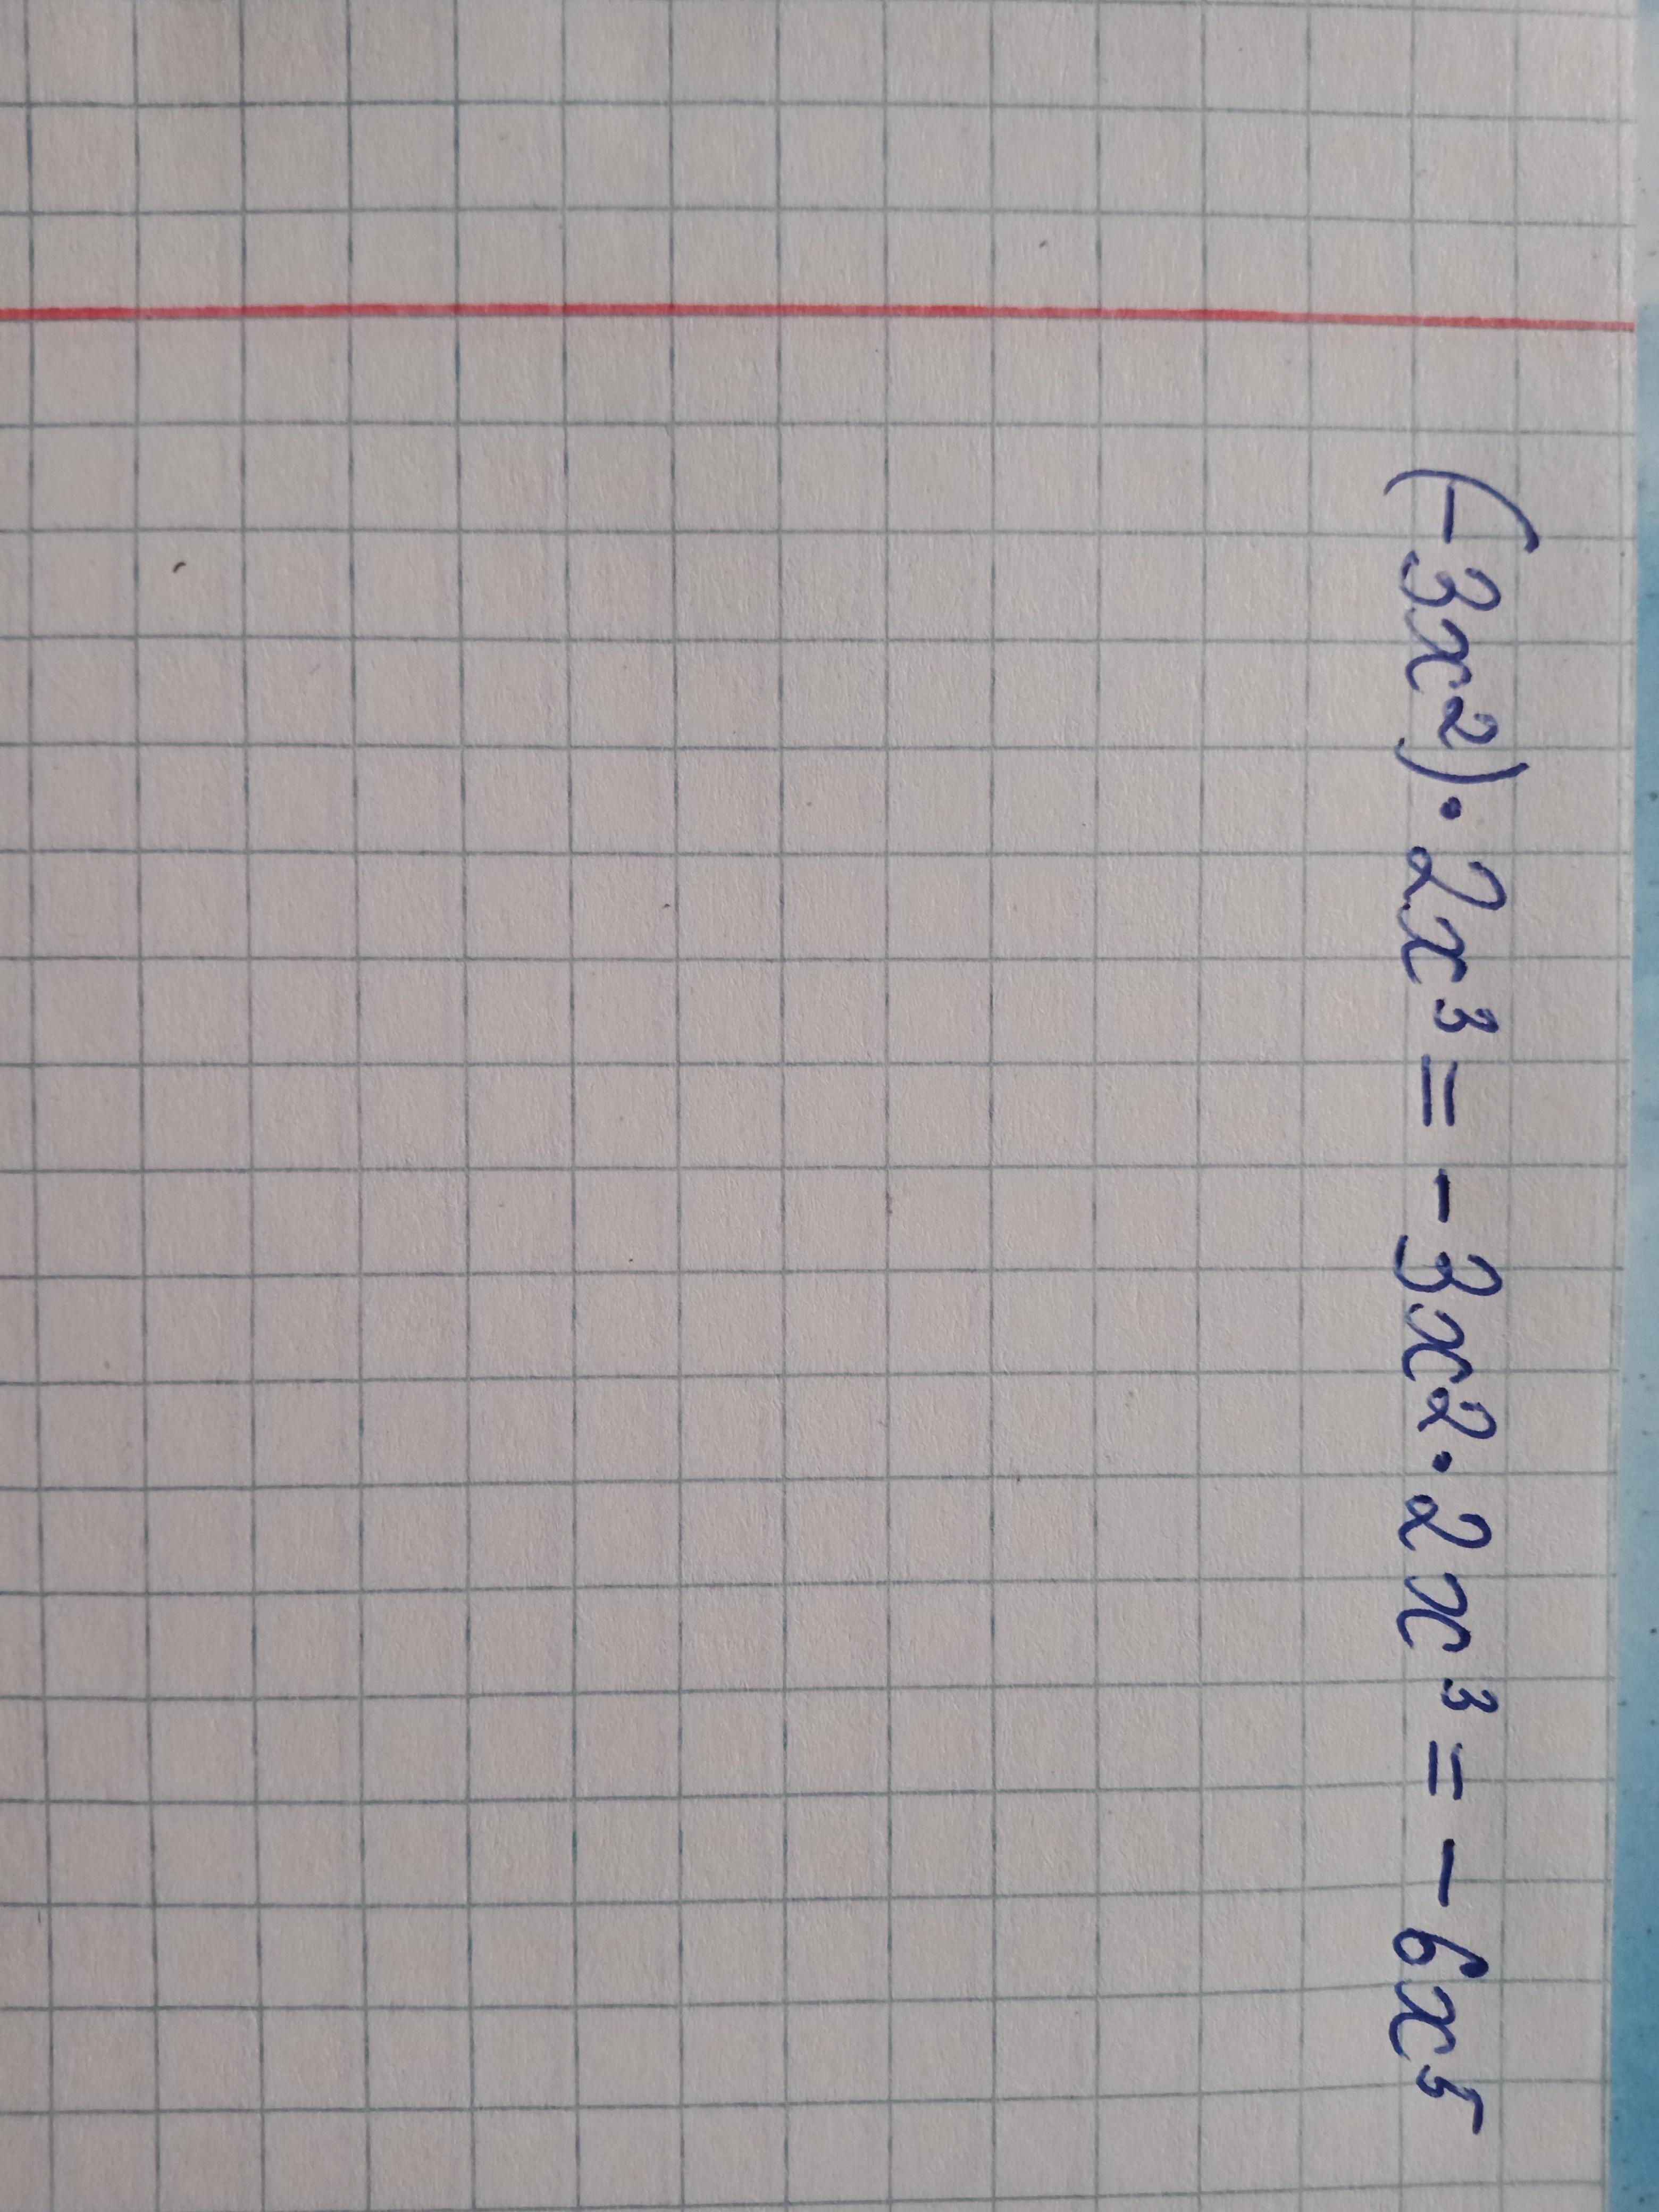 (-3x²)·2x³ = -3x²·2x³ = -6x⁵